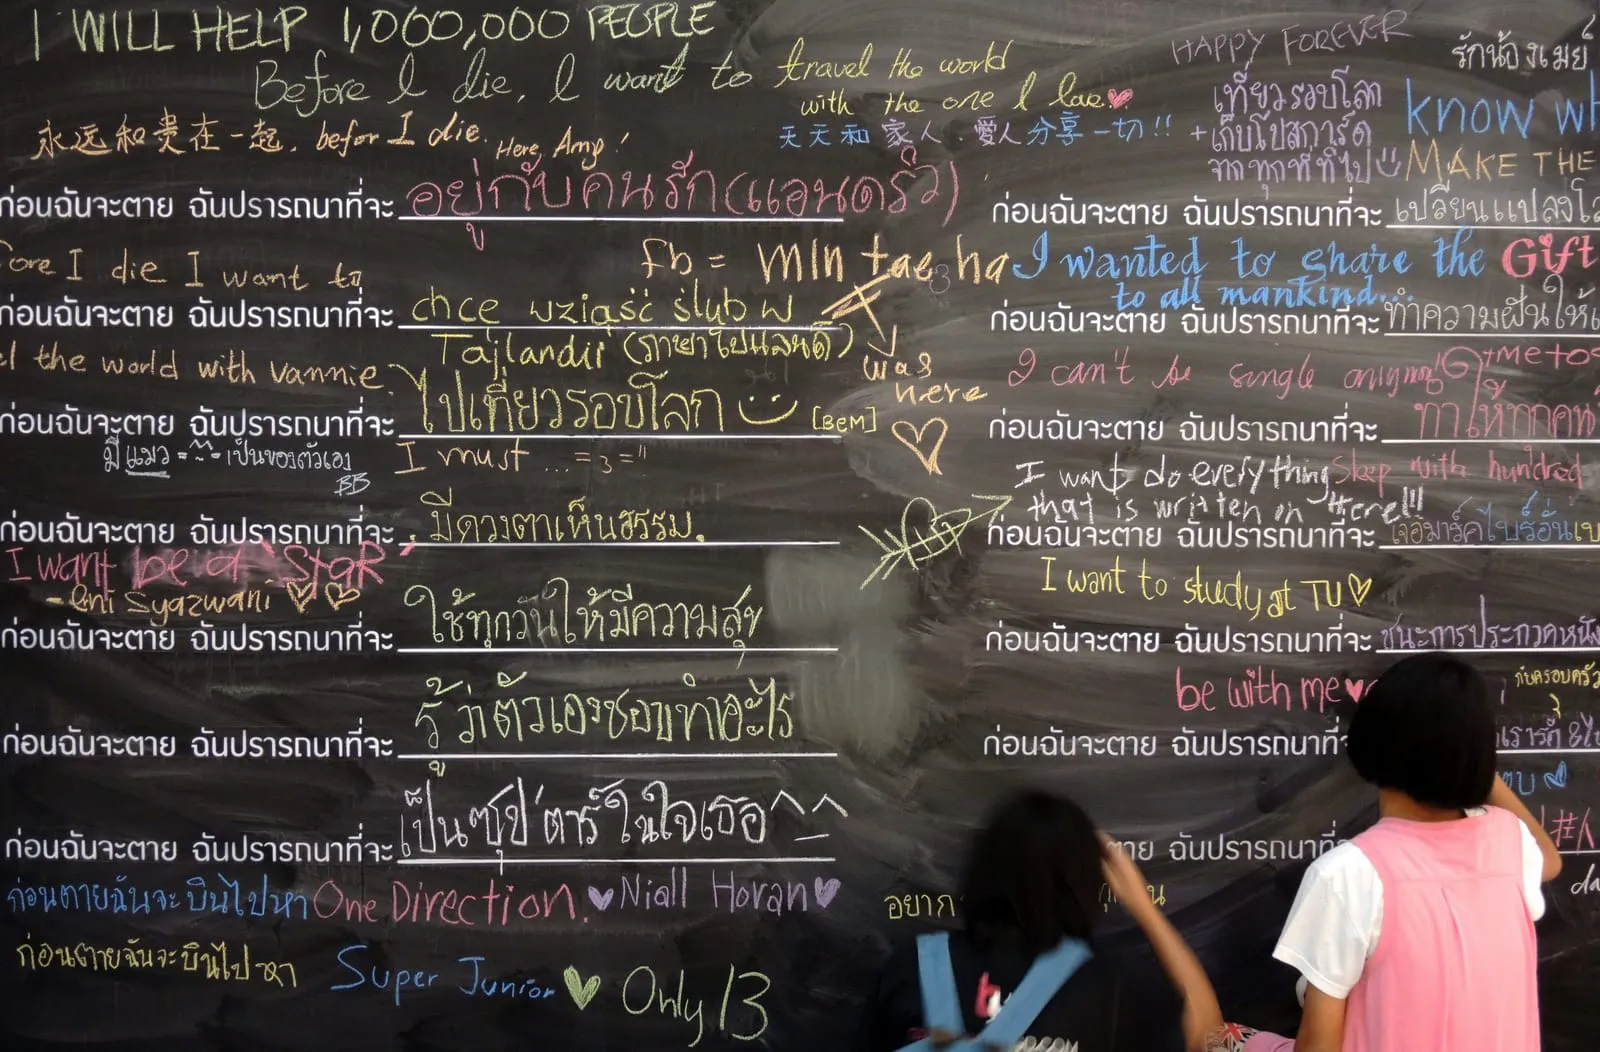 I WILL HELP 1,000,000 PEOPLE
Before I die, I want to travel the world
with the one I love
永远和贵在一起, befor I die. Here, Amp!
天天和家人.愛人分享一切!!
HAPPY FOREVER
รักน้องเมย์
เที่ยวรอบโลก
+เก็บโปสการ์ด
จากทุกที่ที่ไป
KNOW
MAKE THE
ก่อนฉันจะตาย ฉันปรารถนาที่จะ อยู่กับคนรัก(แอนดริว)
ก่อนฉันจะตาย ฉันปรารถนาที่จะ
I die I want to
fb = min tae ha
I wanted to share the Gift
to all mankind...
ก่อนฉันจะตาย ฉันปรารถนาที่จะ chce wziąść ślub w
Tajlandii (ภาษาโปแลนด์)
was
here
ก่อนฉันจะตาย ฉันปรารถนาที่จะ
the world with vannie
I can't be single
ก่อนฉันจะตาย ฉันปรารถนาที่จะ ไปเที่ยวรอบโลก [BEM]
ก่อนฉันจะตาย ฉันปรารถนาที่จะ
มีแมว = เป็นของตัวเอง
BB
I must ... = 3 = "
I want do everything
that is written in there!!!
Sleep with hundred
ก่อนฉันจะตาย ฉันปรารถนาที่จะ มีดวงตาเห็นธรรม.
ก่อนฉันจะตาย ฉันปรารถนาที่จะ
I want be a StaR
Syazwani
I want to study at TU
ก่อนฉันจะตาย ฉันปรารถนาที่จะ ใช้ทุกวันให้มีความสุข
ก่อนฉันจะตาย ฉันปรารถนาที่จะ ชนะการประกวดหนัง
be with me
กับครอบครัว
ก่อนฉันจะตาย ฉันปรารถนาที่จะ รู้ว่าตัวเองชอบทำอะไร
ก่อนฉันจะตาย ฉันปรารถนาที่
ก่อนฉันจะตาย ฉันปรารถนาที่จะ เป็นซุป'ตาร์ในใจเธอ^_^
ฉันปรารถนาที่
ก่อนตายฉันจะบินไปหา One Direction. Niall Horan
อยาก
ก่อนตายฉันจะบินไปหา Super Junior Only 13